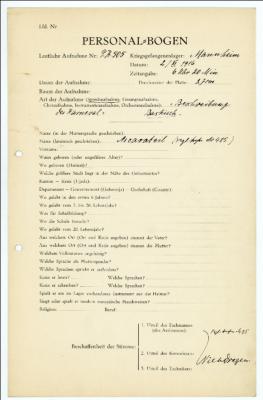 Lfd. Nr
PERSONAL-BOGEN
Lautliche Aufnahme Nr.: PK 505 Kriegsgefangenenlager: Mannheim
Datum: 2/XI 1916
Zeitangabe: 6 Uhr 20 Min
Dauer der Aufnahme: Durchmesser der Platte: 27 cm
Raum der Aufnahme:
Art der Aufnahme (Sprechaufnahme, Gesangsaufnahme,
Choraufnahme, Instrumentenaufnahme, Orchesteraufnahme): Beschreibung
des Karneval Baskisch.
Name (in der Muttersprache geschrieben):
Name (lateinisch geschrieben):
Vorname:
Wann geboren (oder ungefähres Alter)?
Wo geboren (Heimat)?
Welche größere Stadt liegt in der Nähe des Geburtsortes?
Kanton — Kreis (Ujedz)?
Departement — Gouvernement (Gubernija) — Grafschaft (County)
Wo gelebt in den ersten 6 Jahren?
Wo gelebt vom 7. bis 20. Lebensjahr?
Was für Schulbildung?
Wo die Schule besucht?
Wo gelebt vom 20. Lebensjahr?
Aus welchem Ort (Ort und Kreis angeben) stammt der Vater?
Aus welchem Ort (Ort und Kreis angeben) stammt die Mutter?
Welchem Volksstamm angehörig?
Welche Sprache als Muttersprache?
Welche Sprachen spricht er außerdem?
Kann er lesen? Welche Sprachen?
Kann er schreiben? Welche Sprachen?
Spielt er ein im Lager vorhandenes Instrument aus der Heimat?
Singt oder spielt er modern europäische Musikweisen?
Religion: Beruf:
1. Urteil des Fachmannes
(des Assistenten):
Beschaffenheit der Stimme: 2. Urteil des Kommissars:
3. Urteil des Technikers: